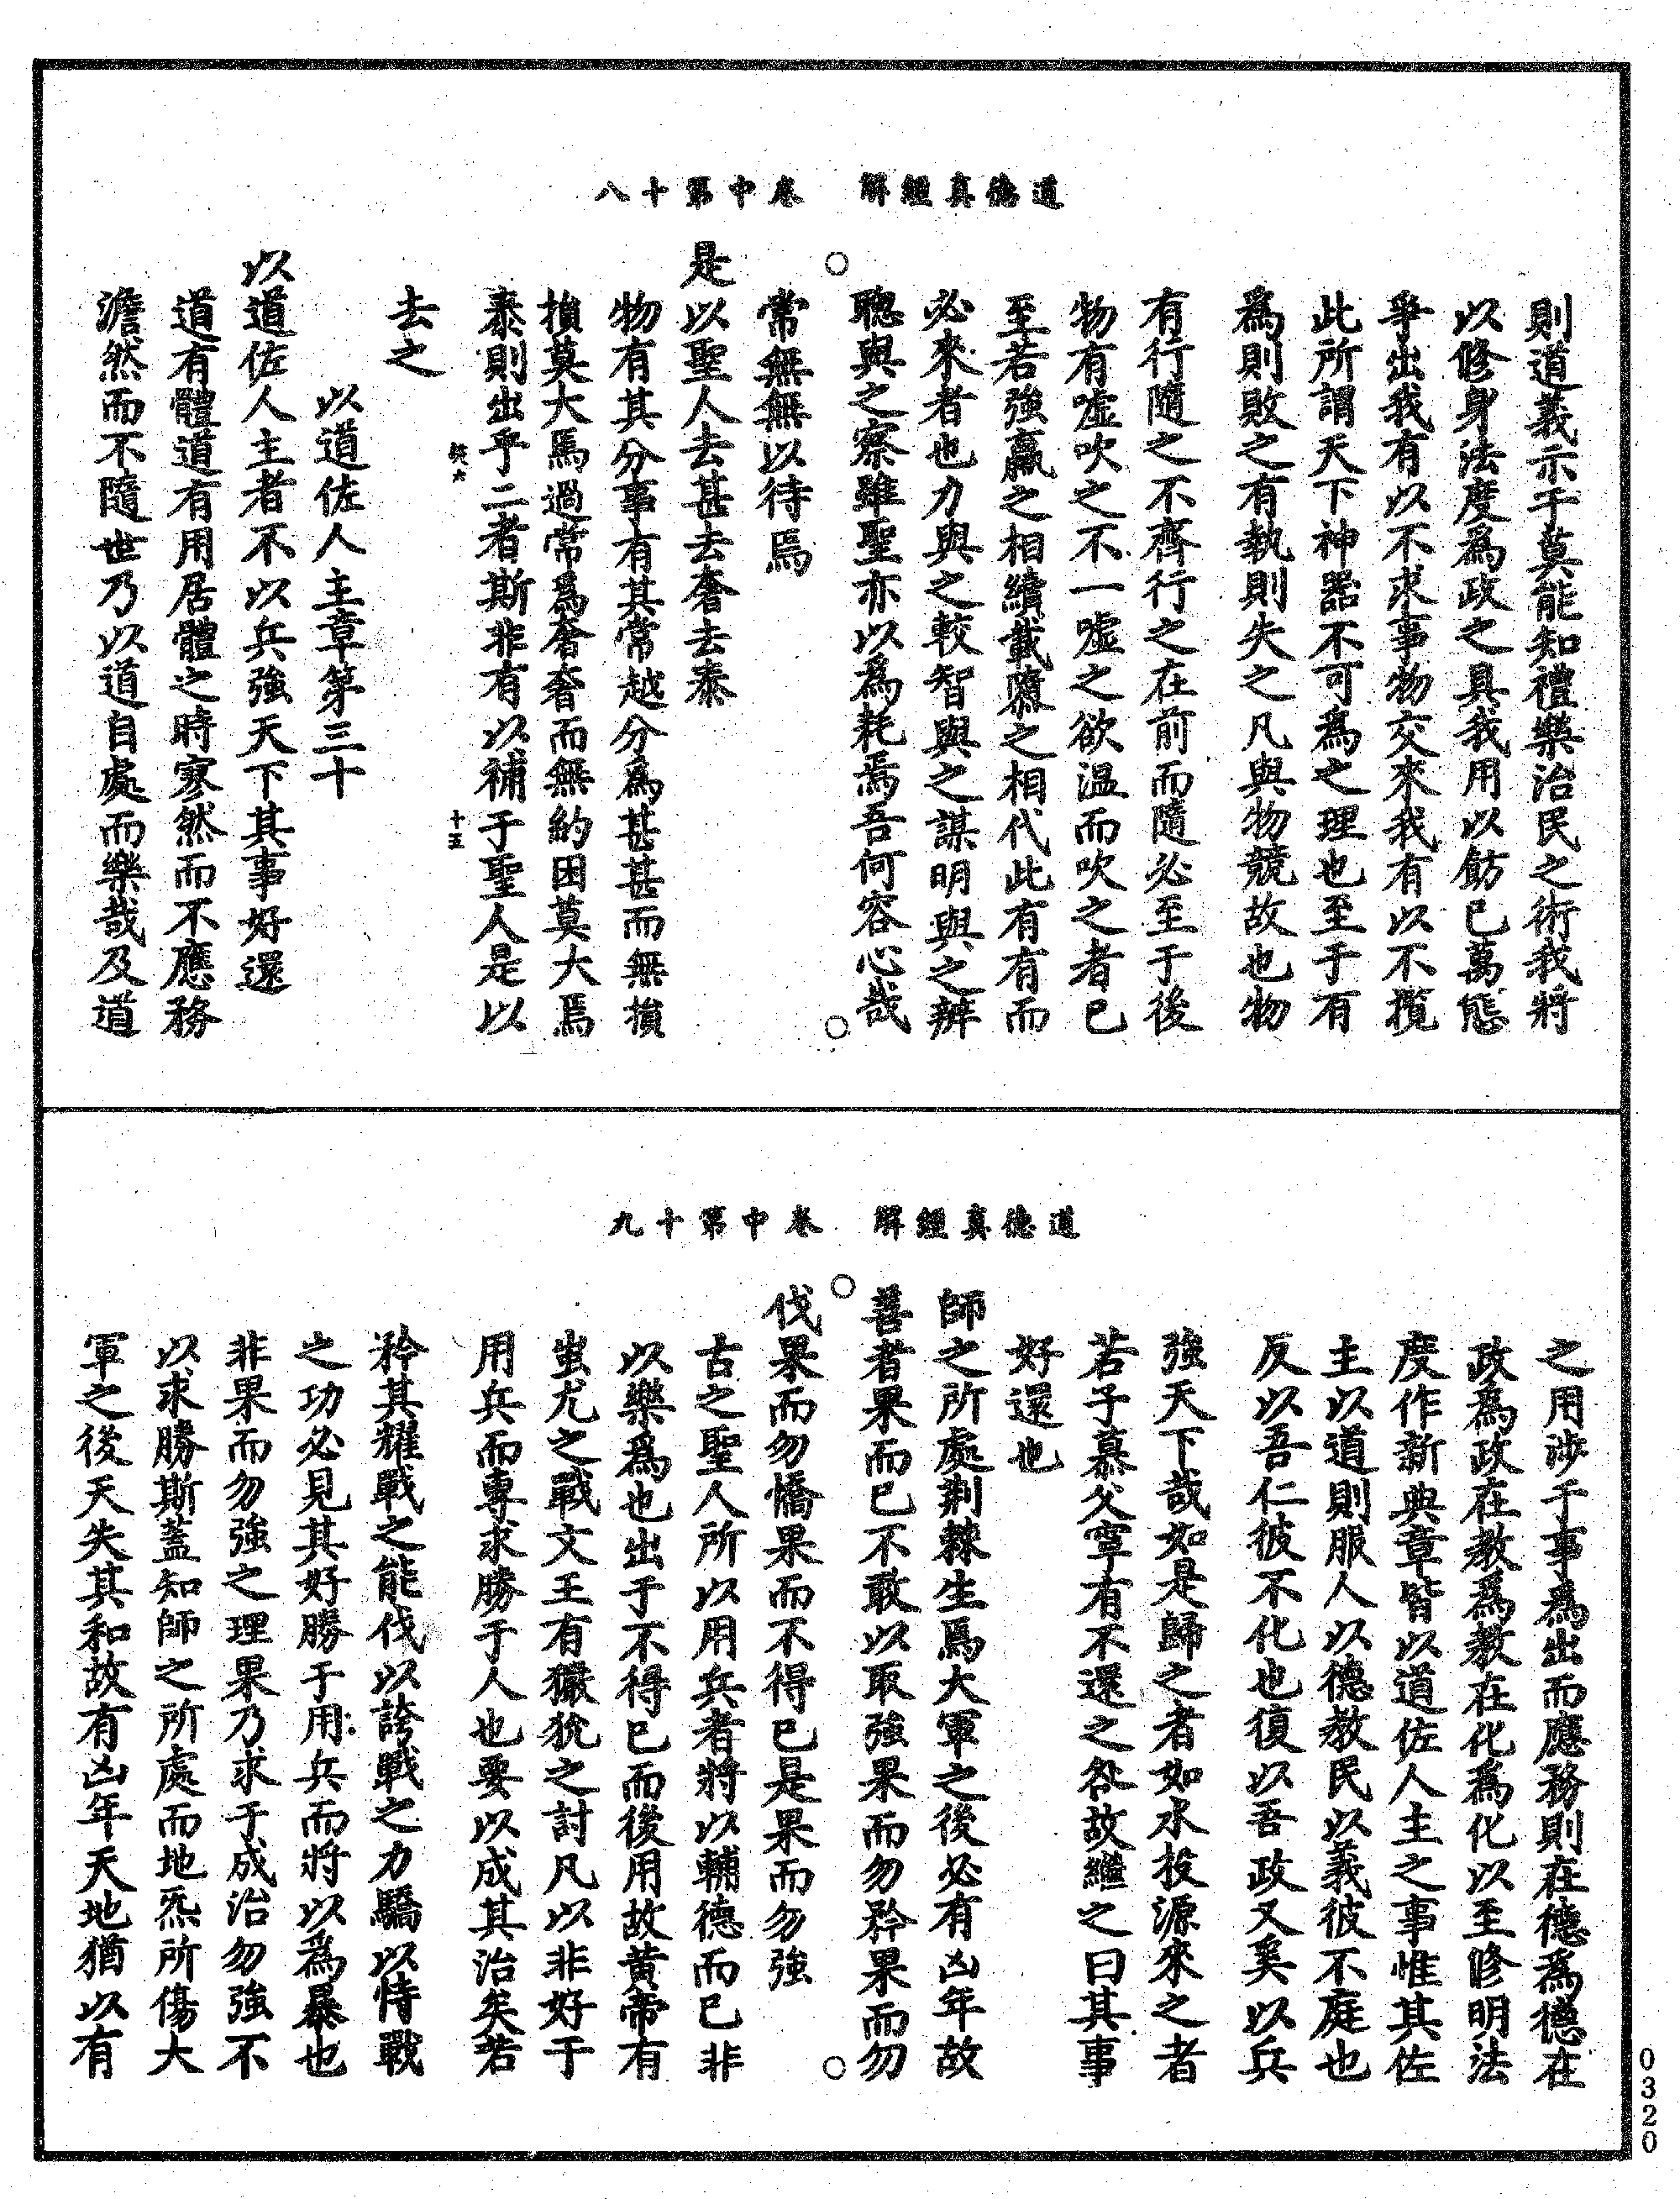 道德真經解　卷中第十八
則道義示于莫能知禮樂治民之術我將
以修身法度爲政之具我用以飭已萬態
爭出我有以不求事物交來我有以不攬
此所謂天下神器不可爲之理也至于有
爲則敗之有執則失之凡與物競故也物
有行隨之不齊行之在前而隨必至于後
物有噓吹之不一噓之欲温而吹之者已
至若強羸之相續載隳之相代此有有而
必來者也力與之較智與之謀明與之辨
聰與之察雖聖亦以爲耗焉吾何容心哉
常無無以待焉
是以聖人去甚去奢去泰
物有其分事有其常越分爲甚甚而無損
損莫大焉過常爲奢奢而無約困莫大焉
泰則出乎二者斯非有以補于聖人是以
十五
去之
以道佐人主章第三十
以道佐人主者不以兵強天下其事好還
道有體道有用居體之時寥然而不應務
澹然而不隨世乃以道自處而樂哉及道
道德真經解　卷中第十九
之用涉于事爲出而應務則在德爲德在
政爲政在教爲教在化爲化以至修明法
度作新典章皆以道佐人主之事惟其佐
主以道則服人以德教民以義彼不庭也
反以吾仁彼不化也復以吾政又奚以兵
強天下哉如是歸之者如水投源來之者
若子慕父寧有不還之咎故繼之曰其事
好還也
師之所處荆棘生焉大軍之後必有凶年故
善者果而已不敢以取強果而勿矜果而勿
伐果而勿憍果而不得已是果而勿強
古之聖人所以用兵者將以輔德而已非
以樂爲也出于不得已而後用故黄帝有
蚩尤之戰文王有玁狁之討凡以非好于
用兵而專求勝于人也要以成其治矣若
矜其耀戰之能伐以誇戰之力驕以恃戰
之功必見其好勝于用兵而將以爲暴也
非果而勿強之理果乃求于成治勿強不
以求勝斯蓋知師之所處而地炁所傷大
軍之後天失其和故有凶年天地猶以有
0320